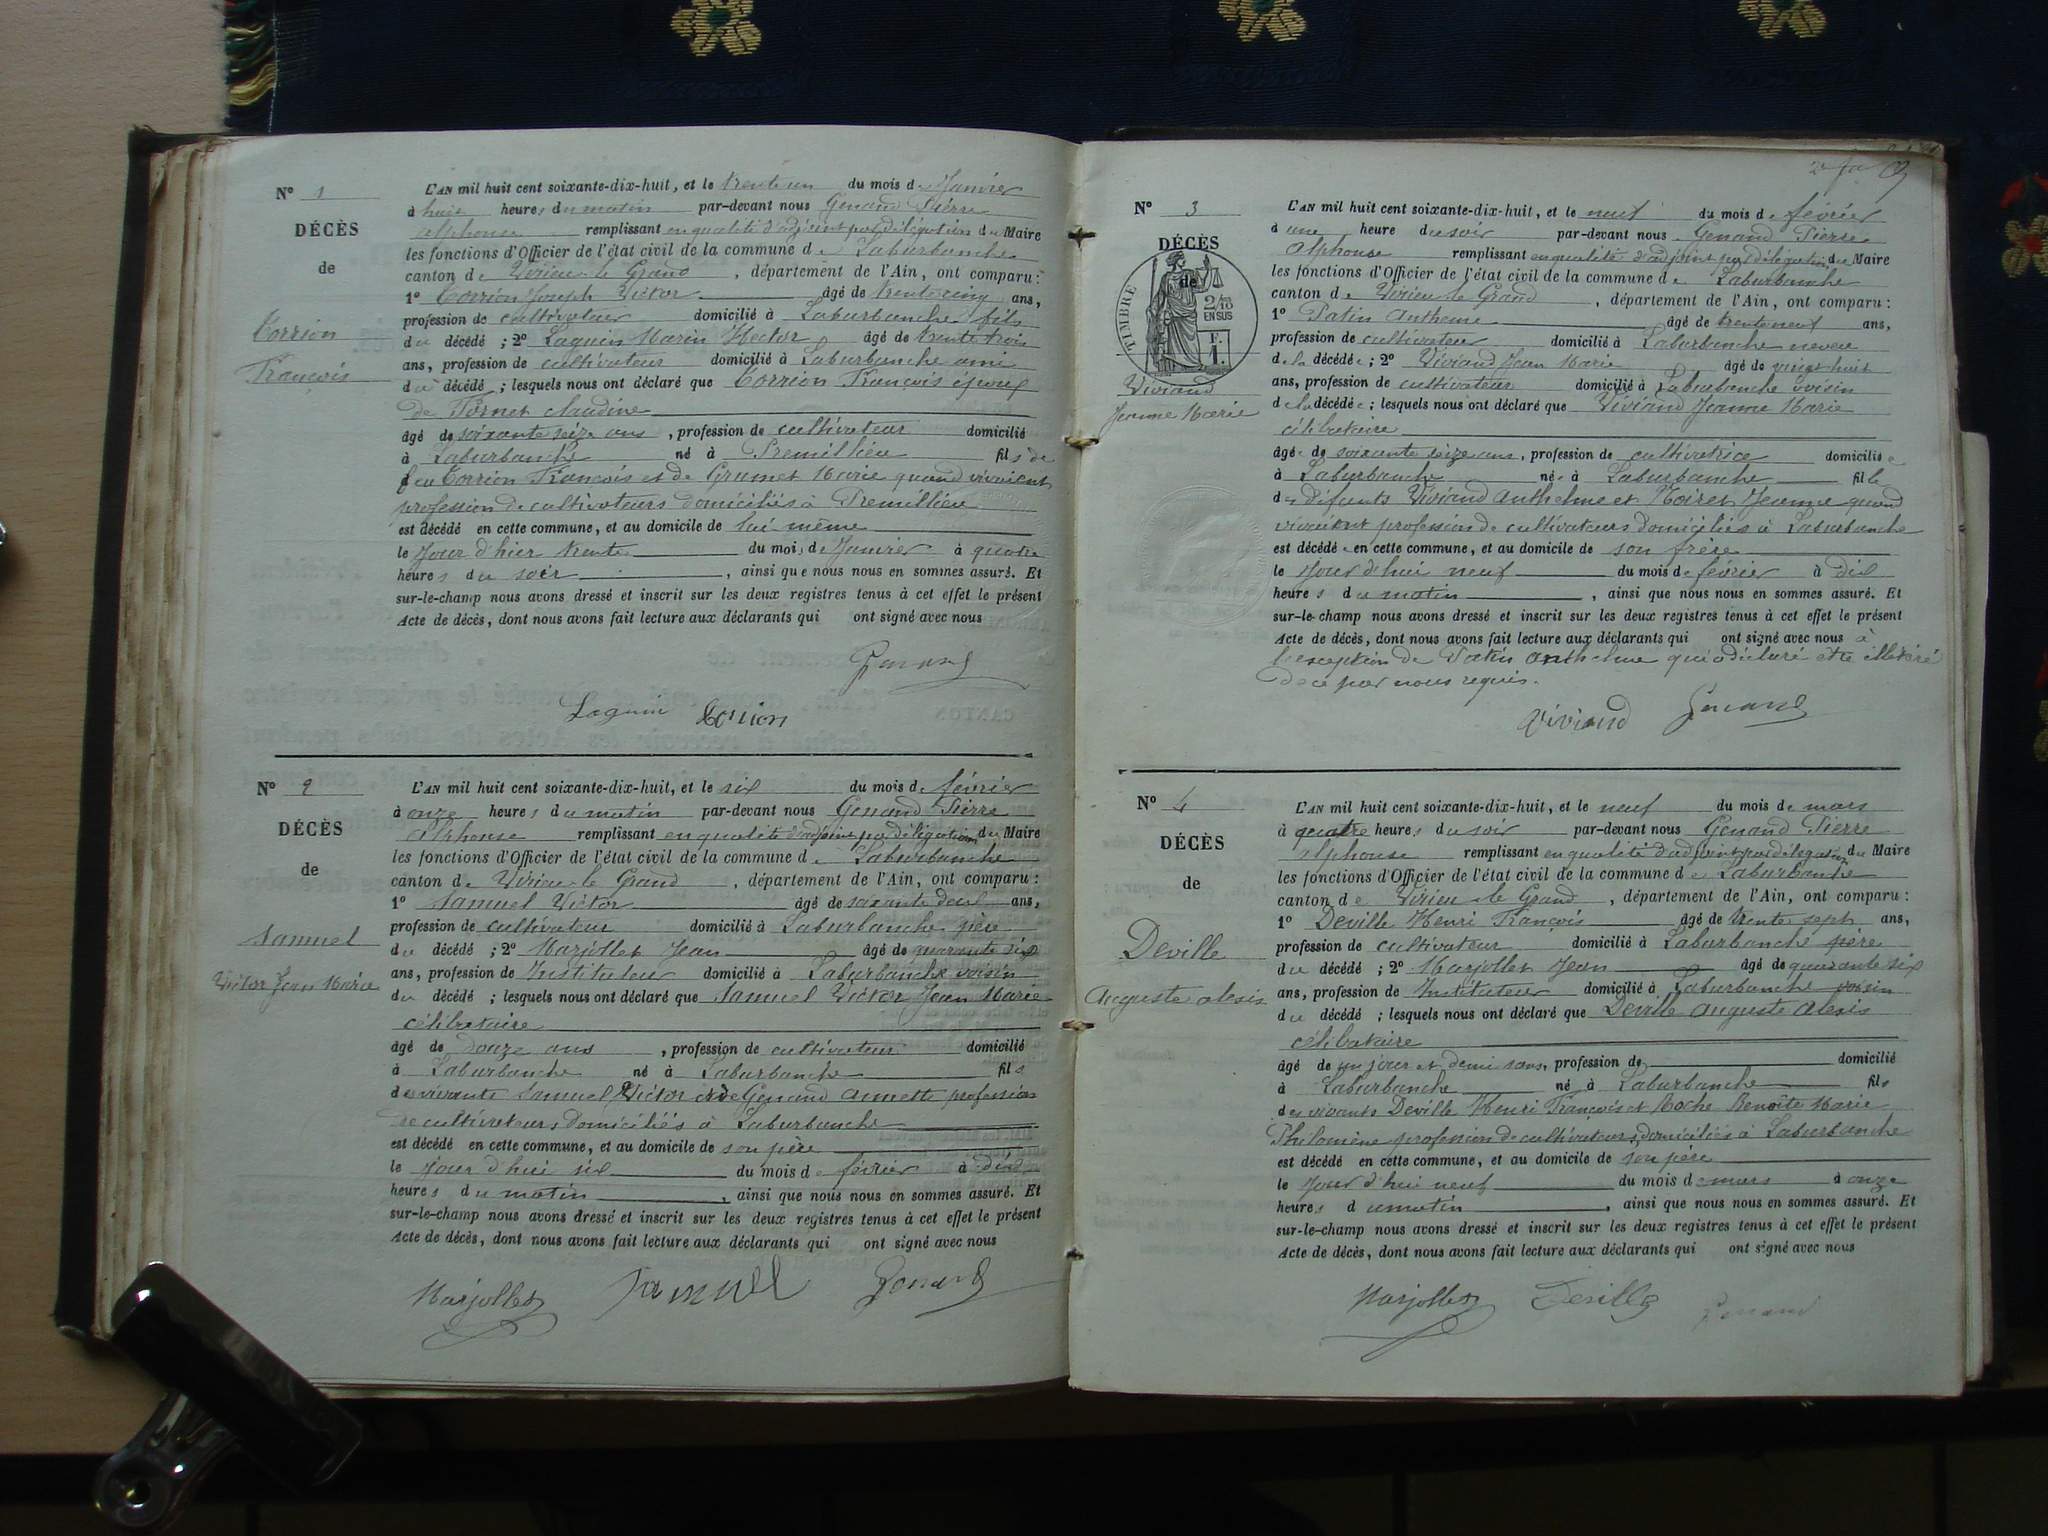 N° 1
DÉCÈS
de
Corrion
François
L'AN mil huit cent soixante-dix-huit, et le trente un du mois de Janvier
à huit heures du matin par-devant nous Genand Pierre
alphonse remplissant en qualité d'adjoint par délégation du Maire
les fonctions d'Officier de l'état civil de la commune de Laburbanche
canton de Virieu-le-Grand, département de l'Ain, ont comparu :
1° Corrion Joseph Victor âgé de trente cinq ans,
profession de cultivateur domicilié à Laburbanche fils
du décédé ; 2° Laguin Marin Hector âgé de trente trois
ans, profession de cultivateur domicilié à Laburbanche ami
du décédé ; lesquels nous ont déclaré que Corrion François époux
de Tornet claudine
âgé de soixante seize ans, profession de cultivateur domicilié
à Laburbanche né à Premillieu fils de
feu Corrion François et de Gramet Marie quand vivaient
profession de cultivateurs domiciliés à Premillieu
est décédé en cette commune, et au domicile de lui même
le Jour d'hier trente du mois de Janvier à quatre
heures du soir, ainsi que nous nous en sommes assuré. Et
sur-le-champ nous avons dressé et inscrit sur les deux registres tenus à cet effet le présent
Acte de décès, dont nous avons fait lecture aux déclarants qui ont signé avec nous
Genand
Laguin Corrion
N° 2
DÉCÈS
de
Samuel
Victor Jean Marie
L'AN mil huit cent soixante-dix-huit, et le six du mois de février
à onze heures du matin par-devant nous Genand Pierre
alphonse remplissant en qualité d'adjoint par délégation du Maire
les fonctions d'Officier de l'état civil de la commune de Laburbanche
canton de Virieu-le-Grand, département de l'Ain, ont comparu :
1° Samuel Victor âgé de soixante deux ans,
profession de cultivateur domicilié à Laburbanche père
du décédé ; 2° Marjollet Jean âgé de quarante six
ans, profession de Instituteur domicilié à Laburbanche voisin
du décédé ; lesquels nous ont déclaré que Samuel Victor Jean Marie
célibataire
âgé de douze ans, profession de cultivateur domicilié
à Laburbanche né à Laburbanche fils
des vivants Samuel Victor et de Genand annette profession
de cultivateurs domiciliés à Laburbanche
est décédé en cette commune, et au domicile de son père
le Jour d'hui six du mois de février à dix
heures du matin, ainsi que nous nous en sommes assuré. Et
sur-le-champ nous avons dressé et inscrit sur les deux registres tenus à cet effet le présent
Acte de décès, dont nous avons fait lecture aux déclarants qui ont signé avec nous
Marjollet Samuel Genand
N° 3
DÉCÈS
de
TIMBRE
2/10
EN SUS
F.
1.
Viviand
Jeanne Marie
L'AN mil huit cent soixante-dix-huit, et le neuf du mois de février
à une heure du soir par-devant nous Genand Pierre
alphonse remplissant en qualité d'adjoint par délégation du Maire
les fonctions d'Officier de l'état civil de la commune de Laburbanche
canton de Virieu le Grand, département de l'Ain, ont comparu :
1° Patin Anthelme âgé de trente neuf ans,
profession de cultivateur domicilié à Laburbanche neveu
de la décédée ; 2° Viviand Jean Marie âgé de vingt huit
ans, profession de cultivateur domicilié à Laburbanche voisin
de la décédée ; lesquels nous ont déclaré que Viviand Jeanne Marie
célibataire
âgée de soixante seize ans, profession de cultivatrice domiciliée
à Laburbanche née à Laburbanche fille
des défunts Viviand Anthelme et Jeanne quand
vivaient profession de cultivateurs domiciliés à Laburbanche
est décédée en cette commune, et au domicile de son frère
le Jour d'hui neuf du mois de février à dix
heures du matin, ainsi que nous nous en sommes assuré. Et
sur-le-champ nous avons dressé et inscrit sur les deux registres tenus à cet effet le présent
Acte de décès, dont nous avons fait lecture aux déclarants qui ont signé avec nous à
l'exception de Patin anthelme qui a déclaré etre illétéré
de ce par nous requis.
Viviand Genand
N° 4
DÉCÈS
de
Deville
Auguste alexis
L'AN mil huit cent soixante-dix-huit, et le neuf du mois de mars
à quatre heures du soir par-devant nous Genand Pierre
alphonse remplissant en qualité d'adjoint par délégation du Maire
les fonctions d'Officier de l'état civil de la commune de Laburbanche
canton de Virieu-le Grand, département de l'Ain, ont comparu :
1° Deville Henri François âgé de trente sept ans,
profession de cultivateur domicilié à Laburbanche père
du décédé ; 2° Marjollet Jean âgé de quarante six
ans, profession de Instituteur domicilié à Laburbanche voisin
du décédé ; lesquels nous ont déclaré que Deville Auguste Alexis
célibataire
âgé de un jour et demi sans, profession de domicilié
à Laburbanche né à Laburbanche fils
des vivants Deville Henri François et Roche Benoîte Marie
Philomène profession de cultivateurs domiciliés à Laburbanche
est décédé en cette commune, et au domicile de son père
le Jour d'hui neuf du mois de mars à onze
heures du matin, ainsi que nous nous en sommes assuré. Et
sur-le-champ nous avons dressé et inscrit sur les deux registres tenus à cet effet le présent
Acte de décès, dont nous avons fait lecture aux déclarants qui ont signé avec nous
Marjollet Deville Genand